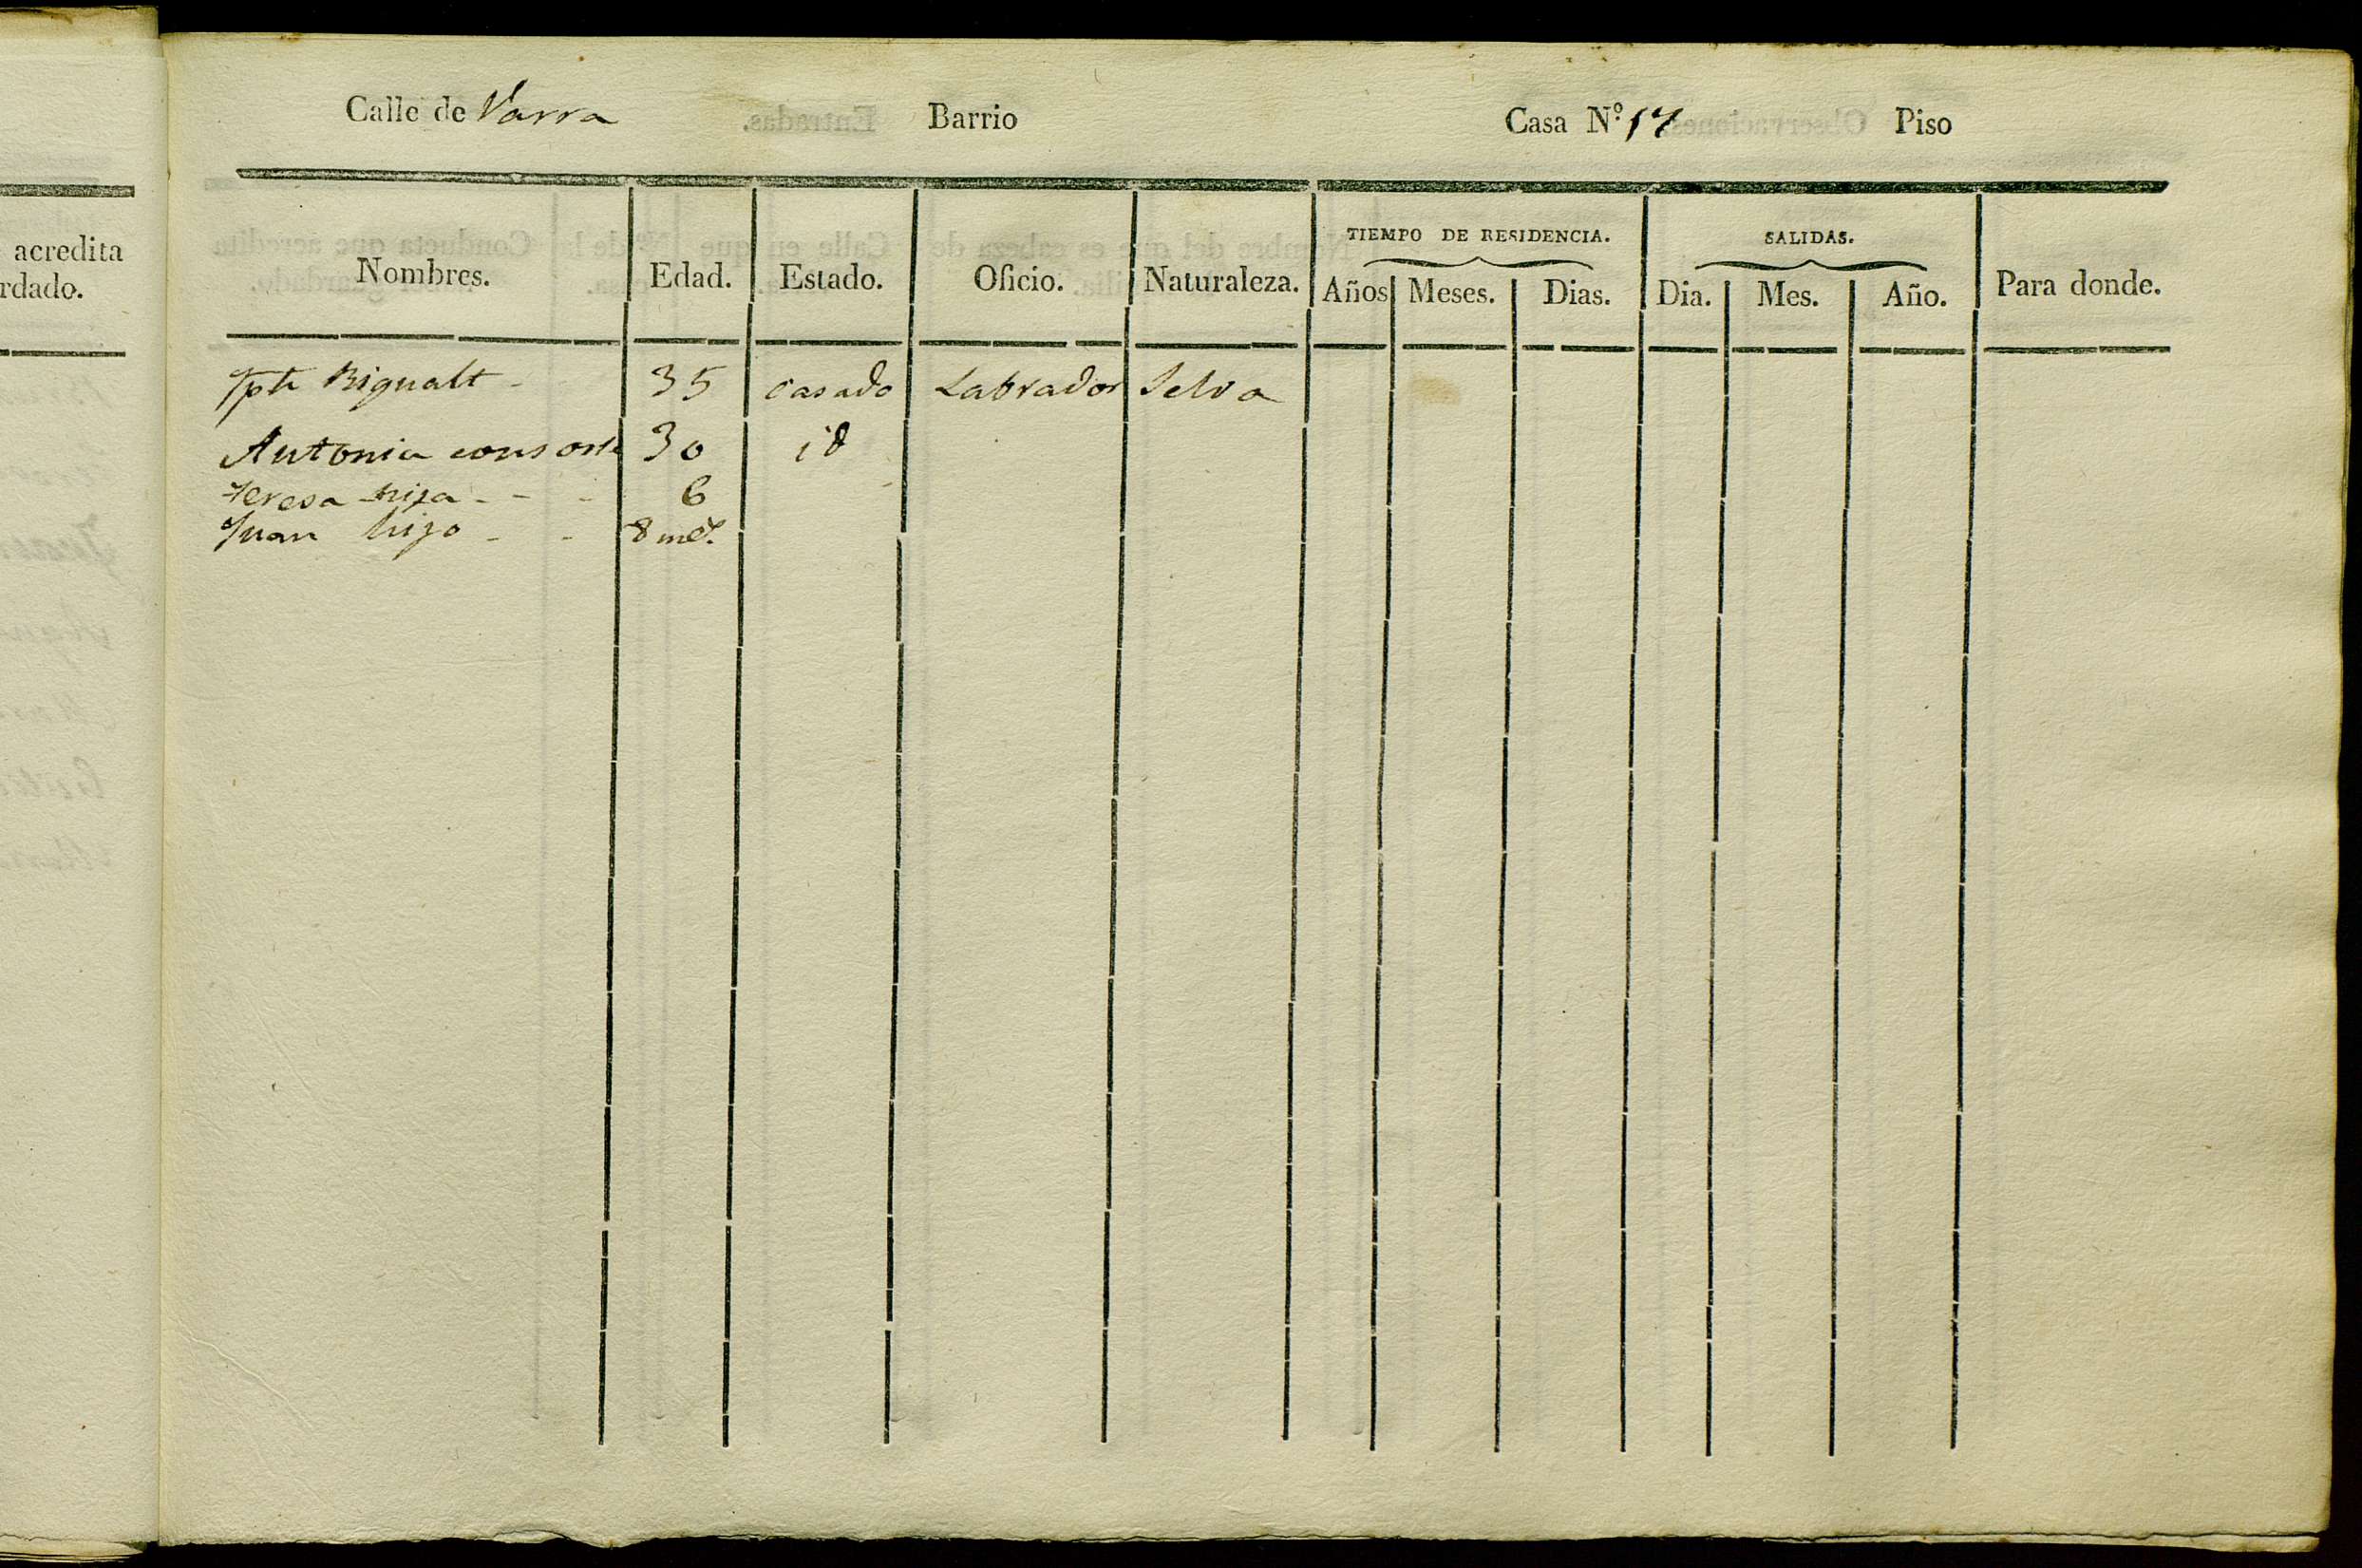 acredita
rdado.
Calle de Varra Barrio Casa N.º 17 Piso
Nombres. Edad. Estado. Oficio. Naturaleza. TIEMPO DE RESIDENCIA. SALIDAS. Para donde.
Años Meses. Dias. Dia. Mes. Año.
Jph Rigualt - 35 casado Labrador Selva
Antonia consorte 30 id
Teresa hija - - - 6
Juan hijo - - 8 mes.